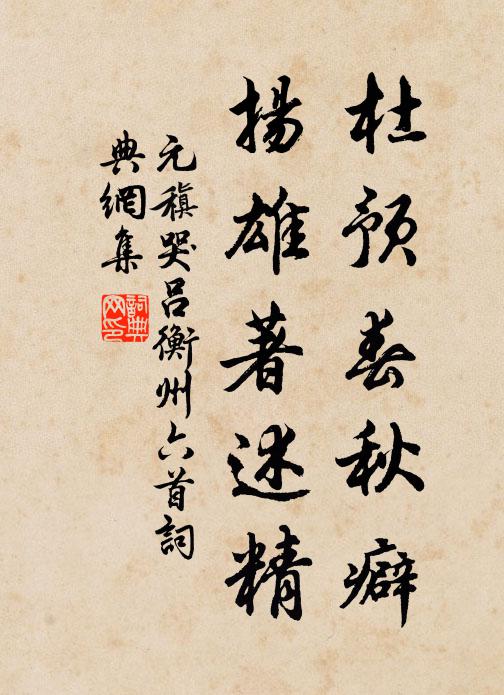 杜預春秋癖
揚雄著述精
元稹哭呂衡州六首詞
典網集
詞典
网印